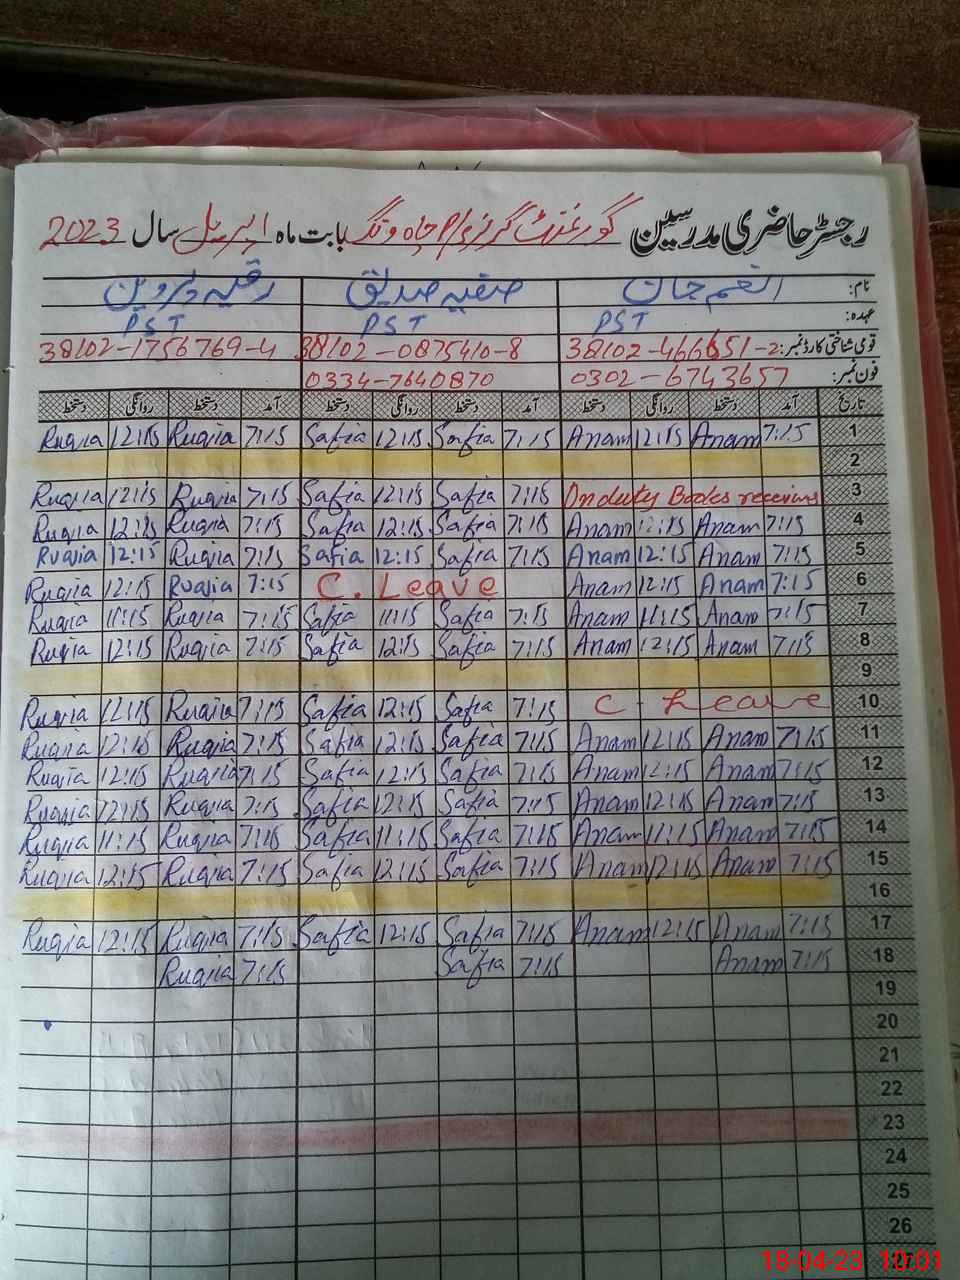 رجسٹر حاضری مدرسین گورنمنٹ گرلز پرائمری چاہ وتگ بابت ماہ اپریل سال 2023
نام: انعم جان صفیہ صدیق رقیہ پروین
عہدہ: PST PST PST
قومی شناختی کارڈ نمبر: 38102-466651-2 38102-0875410-8 38102-1756769-4
فون نمبر: 0302-6743657 0334-7640870
تاریخ آمد دستخط روانگی دستخط آمد دستخط روانگی دستخط آمد دستخط روانگی دستخط
Ruqia 12:15 Ruqia 7:15 Safia 12:15 Safia 7:15 Anam 12:15 Anam 7:15 1
2
Ruqia 12:15 Ruqia 7:15 Safia 12:15 Safia 7:15 On duty Books receiving 3
Ruqia 12:15 Ruqia 7:15 Safia 12:15 Safia 7:15 Anam 12:15 Anam 7:15 4
Ruqia 12:15 Ruqia 7:15 Safia 12:15 Safia 7:15 Anam 12:15 Anam 7:15 5
Ruqia 12:15 Ruqia 7:15 C. Leave Anam 12:15 Anam 7:15 6
Ruqia 11:15 Ruqia 7:15 Safia 11:15 Safia 7:15 Anam 11:15 Anam 7:15 7
Ruqia 12:15 Ruqia 7:15 Safia 12:15 Safia 7:15 Anam 12:15 Anam 7:15 8
9
Ruqia 12:15 Ruqia 7:15 Safia 12:15 Safia 7:15 C. Leave 10
Ruqia 12:15 Ruqia 7:15 Safia 12:15 Safia 7:15 Anam 12:15 Anam 7:15 11
Ruqia 12:15 Ruqia 7:15 Safia 12:15 Safia 7:15 Anam 12:15 Anam 7:15 12
Ruqia 12:15 Ruqia 7:15 Safia 12:15 Safia 7:15 Anam 12:15 Anam 7:15 13
Ruqia 11:15 Ruqia 7:15 Safia 11:15 Safia 7:15 Anam 11:15 Anam 7:15 14
Ruqia 12:15 Ruqia 7:15 Safia 12:15 Safia 7:15 Anam 12:15 Anam 7:15 15
16
Ruqia 12:15 Ruqia 7:15 Safia 12:15 Safia 7:15 Anam 12:15 Anam 7:15 17
Ruqia 7:15 Safia 7:15 Anam 7:15 18
19
20
21
22
23
24
25
26
27
18-04-23 10:01